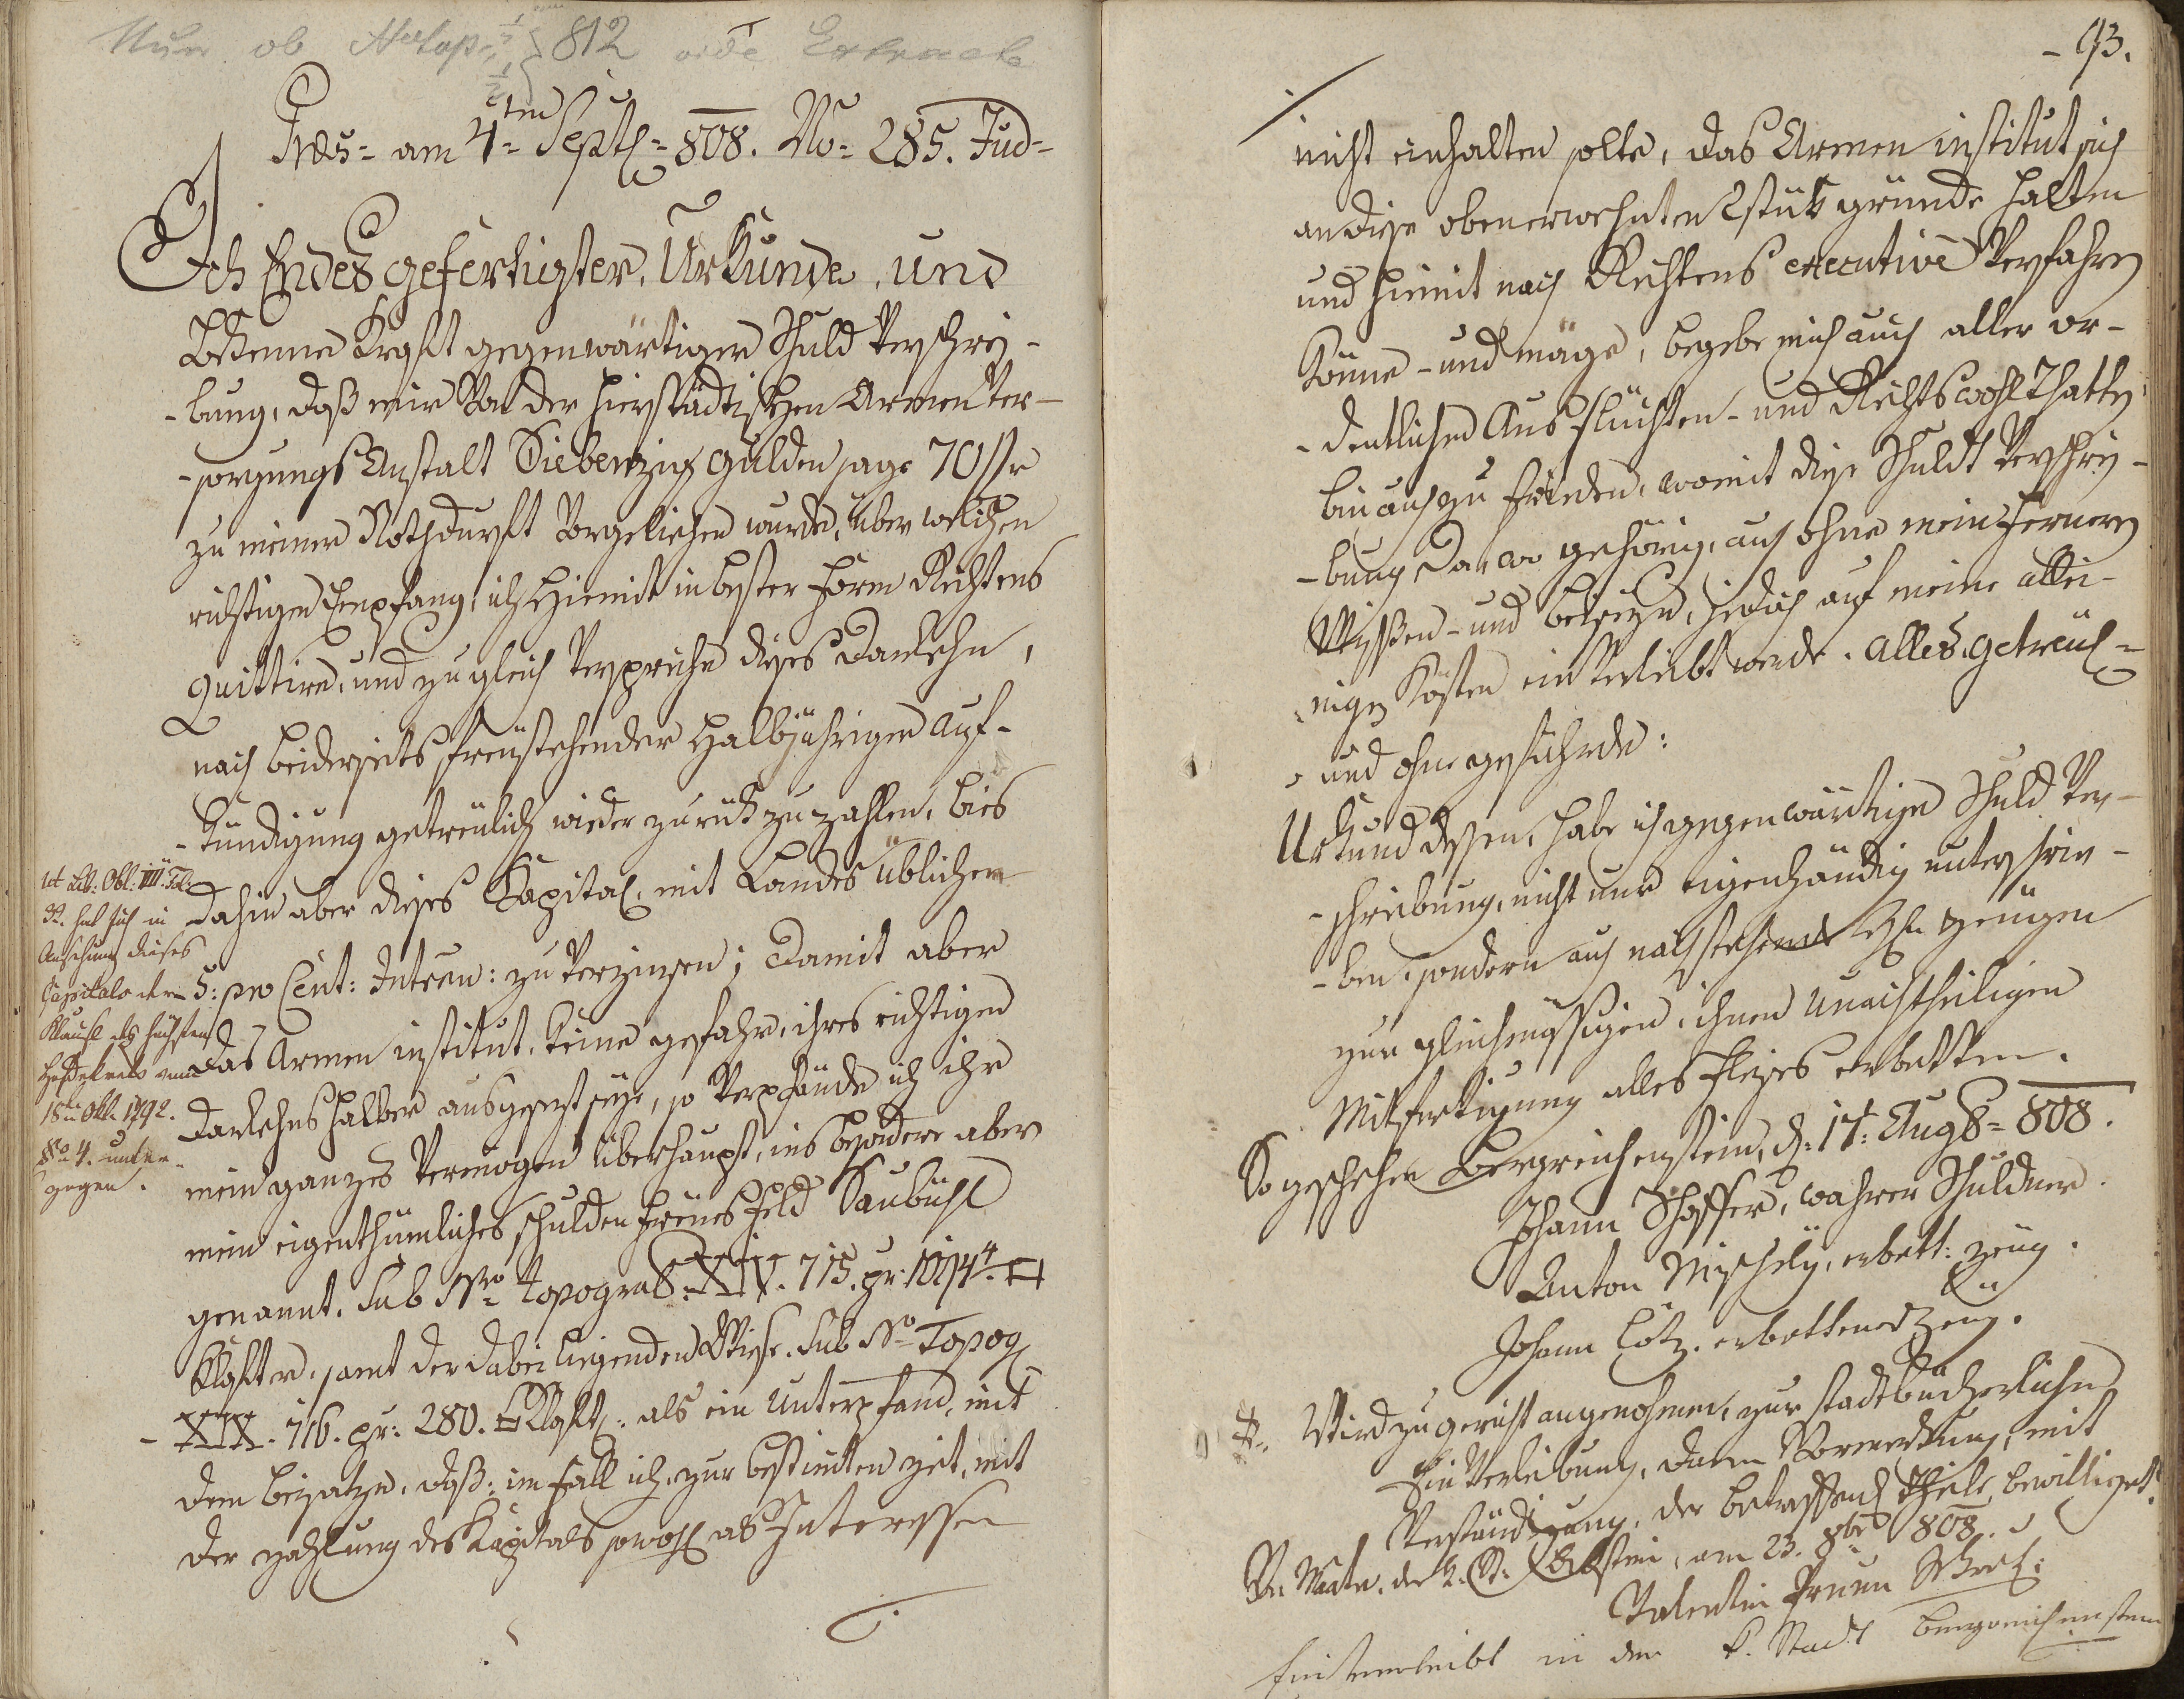 812 vide Extracte
Præs: am 4ten Septl: 808. No: 285. Jud:
Ich Endesgefertigter, Urkunde, und
Bekenne Kraft gegenwärtiger Schuld Verschrei-
-bung, daß mir Von der hierstädtischen Armen Ver-
-sorgungs Anstalt Siebenzig Gulden sage 70 fr
zu meiner Nothdurft Vorgeliehen wurde, über welchen
richtigen Empfang, ich Hiemit in bester Form Rechtens
Quittire, und zu gleich Verspreche dieses Darlehn,
nach beiderseits freÿstehender Halbjährigen Auf-
-kündigung getreulich wieder zurük zu zahlen, bis
Dahin aber dieses Kapital, mit Landes üblichen
5: pro Cent: Intreen: zu Verzinsen; Damit aber
Das Armen institut, keine gefahr, ihres richtigen
Darlehns halber ausgesezt seÿe, so Verpfände ich ihr
mein ganzes Vermögen überhaupt, ins besondere aber
mein eigenthümliches schulden freÿes Feld Saubühl
genannt, sub Nro topogra S: XIV. 715. pr: 1094 4. □
Klafter, samt der dabei liegenden Wiese, sub No Topog
- XIX. 716. pr: 280. □ Klaft: als ein Unterpfand, mit
dem beisatze, daß, im fall ich, zur bestimten zeit, mit
der zahlung des Kapitals sowohl als Interessen
ut Lib: Obl: III. Fol:
92. hat sich in
Ansehung dieses
Capitals der
Klausl des höchsten
Hofdekrets vom
18ten Obl. 1792.
§o 4. unter-
gegen.
- 93.
nicht einhalten solte, das Armen institut sich
an diese obenerwehnten 2 stük gründe halten
und hiemit nach Rechtens executive Verfahren
könne - und möge, begebe mich auch aller or-
-dentlichen Ausflüchten - und Rechtswohlthatten
bin auch zu frieden, womit diese Schuldt Verschrei-
-bung Da, wo gehörig, auch ohne mein ferneres
Wissen - und beiseÿn, jedoch auf meine allei-
nigen Kösten ein Verleibt werde. Alles getreul:
und ohne gefährde:
Urkund dessen, habe ich gegenwärtige Schuld Ver-
-schreibung, nicht nur eigenhändig unterschrie-
-ben, sondern auch nachstehende H. Zeügen
zur gleichmässigen, ihnen Unnachtheiligen
Mitfertigung alles fleises erbetten.
So geschehen Bergreichenstein, d: 17: Aug8: 808.
Johann Schoffer, wahrer Schuldner.
Anton, erbett: zeüg.
Johann Lötz. erbettener Zeüg.
Wird zu gericht angenohmen, zur stadtbücherlichen
Ein Verleibung, dann Vormerkung, mit
Verständigung, der betreffend Theile, bewilliget.
am 23. 8ber 808.
Valentin
Einverleibt in der k. Stadt Bergreichenstein